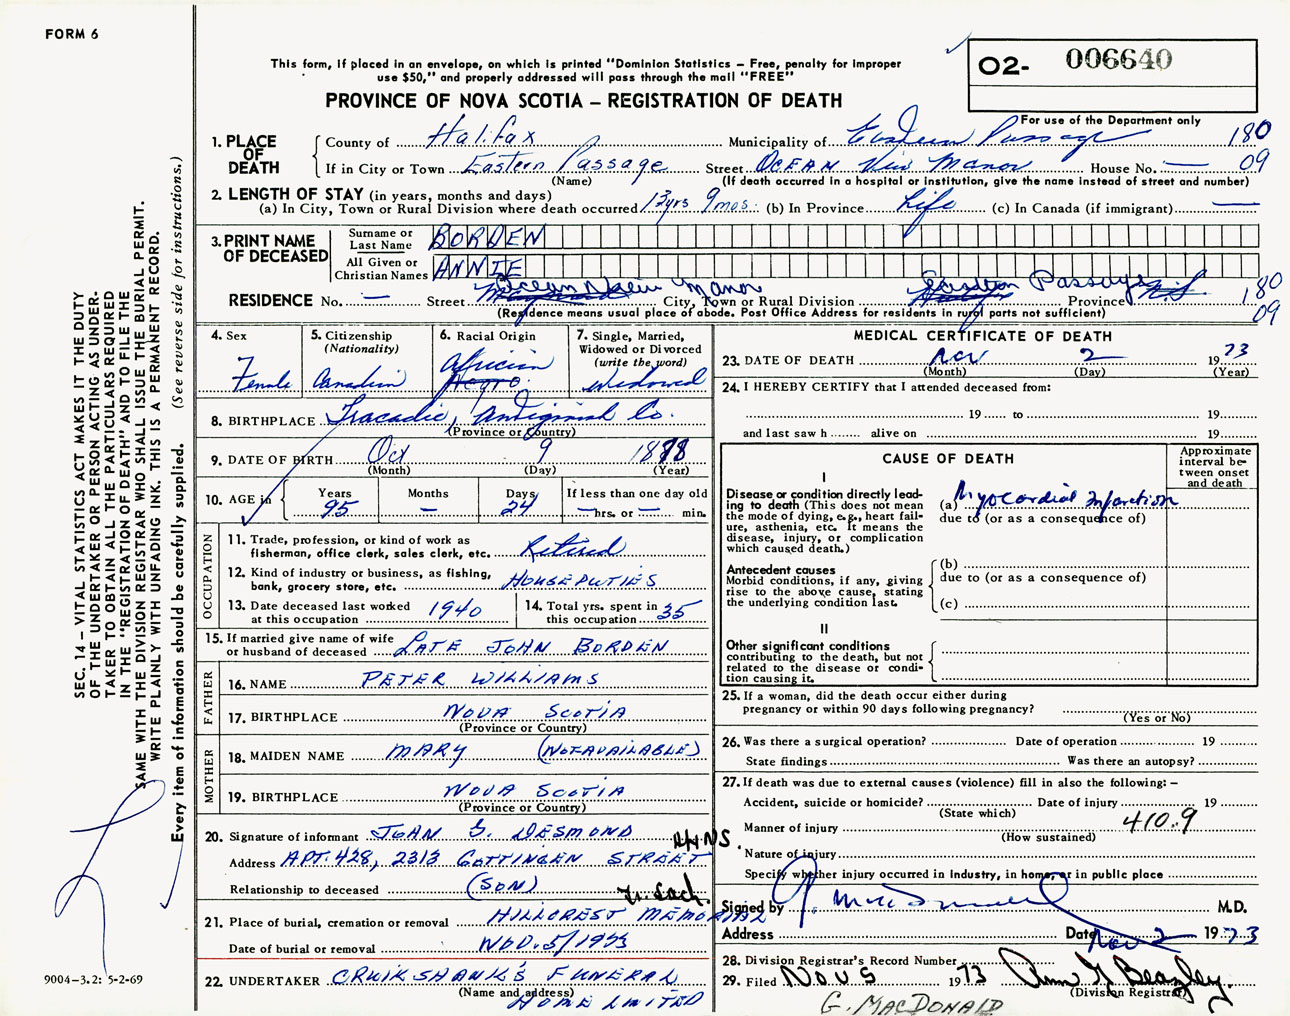 FORM 6
This form, if placed in an envelope, on which is printed "Dominion Statistics – Free, penalty for improper
use $50," and properly addressed will pass through the mail "FREE"
O2- 006640
PROVINCE OF NOVA SCOTIA – REGISTRATION OF DEATH
For use of the Department only
1. PLACE OF DEATH
County of Halifax Municipality of Eastern Passage 180
If in City or Town Eastern Passage Street OCEAN View Manor House No. — 09
(Name) (If death occurred in a hospital or institution, give the name instead of street and number)
2. LENGTH OF STAY (in years, months and days)
(a) In City, Town or Rural Division where death occurred 13yrs 9mos. (b) In Province Life (c) In Canada (if immigrant) —
3. PRINT NAME OF DECEASED
Surname or Last Name BORDEN
All Given or Christian Names ANNIE
RESIDENCE No. — Street Ocean View Manor City, Town or Rural Division Eastern Passage Province N.S 180
(Residence means usual place of abode. Post Office Address for residents in rural parts not sufficient) 09
4. Sex Female
5. Citizenship (Nationality) Canadian
6. Racial Origin African Negro
7. Single, Married, Widowed or Divorced (write the word) Widowed
8. BIRTHPLACE Tracadie, Antigonish Co.
(Province or Country)
9. DATE OF BIRTH Oct 9 1878
(Month) (Day) (Year)
10. AGE in Years 95 Months — Days 24 If less than one day old — hrs. or — min.
OCCUPATION
11. Trade, profession, or kind of work as fisherman, office clerk, sales clerk, etc. Retired
12. Kind of industry or business, as fishing, bank, grocery store, etc. HOUSEDUTIES
13. Date deceased last worked at this occupation 1940
14. Total yrs. spent in this occupation 35
15. If married give name of wife or husband of deceased LATE JOHN BORDEN
FATHER
16. NAME PETER WILLIAMS
17. BIRTHPLACE NOVA SCOTIA
(Province or Country)
MOTHER
18. MAIDEN NAME MARY (NOT AVAILABLE)
19. BIRTHPLACE NOVA SCOTIA
(Province or Country)
20. Signature of informant JOHN G. DESMOND
Address APT. 428, 2313 GOTTINGEN STREET HFX NS.
Relationship to deceased (SON)
21. Place of burial, cremation or removal HILLCREST MEMORIAL
Date of burial or removal NOV. 5/1973
22. UNDERTAKER CRUIKSHANK'S FUNERAL
(Name and address) HOME LIMITED
MEDICAL CERTIFICATE OF DEATH
23. DATE OF DEATH Nov 2 1973
(Month) (Day) (Year)
24. I HEREBY CERTIFY that I attended deceased from:
19 to 19
and last saw h alive on 19
CAUSE OF DEATH
Approximate interval between onset and death
I
Disease or condition directly leading to death (This does not mean the mode of dying, e.g., heart failure, asthenia, etc. It means the disease, injury, or complication which caused death.)
(a) Myocardial Infarction
due to (or as a consequence of)
Antecedent causes
Morbid conditions, if any, giving rise to the above cause, stating the underlying condition last.
(b)
due to (or as a consequence of)
(c)
II
Other significant conditions
contributing to the death, but not related to the disease or condition causing it.
25. If a woman, did the death occur either during
pregnancy or within 90 days following pregnancy?
(Yes or No)
26. Was there a surgical operation? Date of operation 19
State findings Was there an autopsy?
27. If death was due to external causes (violence) fill in also the following: –
Accident, suicide or homicide? Date of injury 19
(State which)
Manner of injury 410.9
(How sustained)
Nature of injury
Specify whether injury occurred in Industry, in home, or in public place
Signed by M.D.
Address Date Nov 2 1973
28. Division Registrar's Record Number
29. Filed NOV 5 1973
(Division Registrar)
G. MACDONALD
SEC. 14 – VITAL STATISTICS ACT MAKES IT THE DUTY
OF THE UNDERTAKER OR PERSON ACTING AS UNDER-
TAKER TO OBTAIN ALL THE PARTICULARS REQUIRED
IN THE "REGISTRATION OF DEATH" AND TO FILE THE
SAME WITH THE DIVISION REGISTRAR WHO SHALL ISSUE THE BURIAL PERMIT.
WRITE PLAINLY WITH UNFADING INK. THIS IS A PERMANENT RECORD.
Every item of information should be carefully supplied. (See reverse side for instructions.)
9004-3.2: 5-2-69